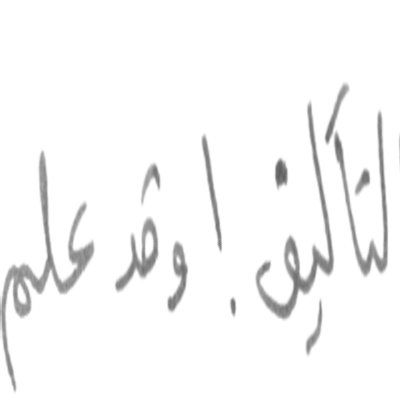 التأليف! وقد علم